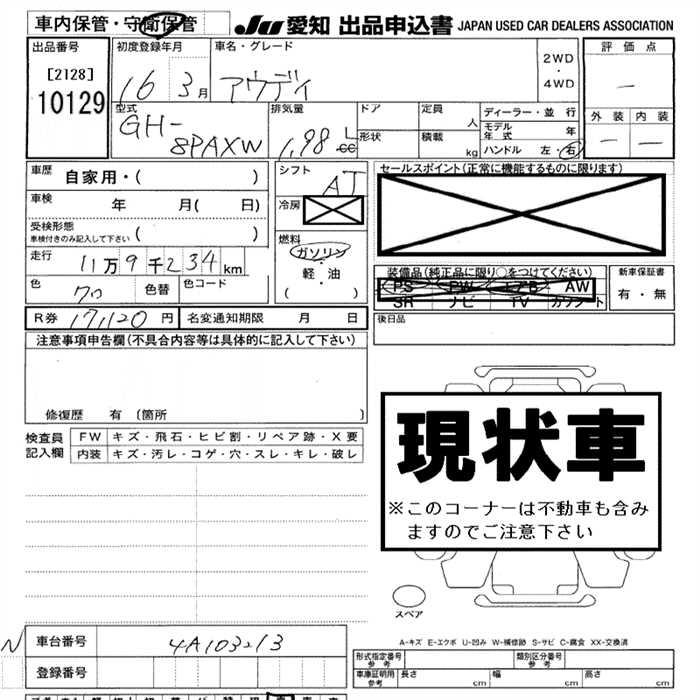 車内保管・守衛保管
JU 愛知 出品申込書 JAPAN USED CAR DEALERS ASSOCIATION
出品番号
[2128]
10129
初度登録年月
16 3月
車名・グレード
アウディ
2WD
・
4WD
評価点
—
型式
GH-
8PAXW
排気量
1.98 L
cc
ドア
定員
人
形状
積載
kg
ディーラー・並行
モデル年式 年
ハンドル 左・右
外装 内装
— —
車歴
自家用・( )
車検 年 月( 日)
受検形態
車検付きのみ記入して下さい ( )
シフト
AT
冷房
燃料
ガソリン
・
軽・油
( )
セールスポイント(正常に機能するものに限ります)
走行
11万9千234km
色
クロ
色替
色コード
装備品(純正品に限り○をつけてください)
PS PW エアB AW
SR ナビ TV カワシート
新車保証書
有・無
R券 17,120円
名変通知期限 月 日
後日品
注意事項申告欄(不具合内容等は具体的に記入して下さい)
修復歴 有 〔箇所 〕
検査員
記入欄
FW キズ・飛石・ヒビ割・リペア跡・X要
内装 キズ・汚レ・コゲ・穴・スレ・キレ・破レ
現状車
※このコーナーは不動車も含み
ますのでご注意下さい
スペア
A-キズ E-エクボ U-凹み W-補修跡 S-サビ C-腐食 XX-交換済
N
車台番号 4A103213
登録番号
形式指定番号
参考
類別区分番号
参考
車庫証明用
参考
長さ cm
幅 cm
高さ cm